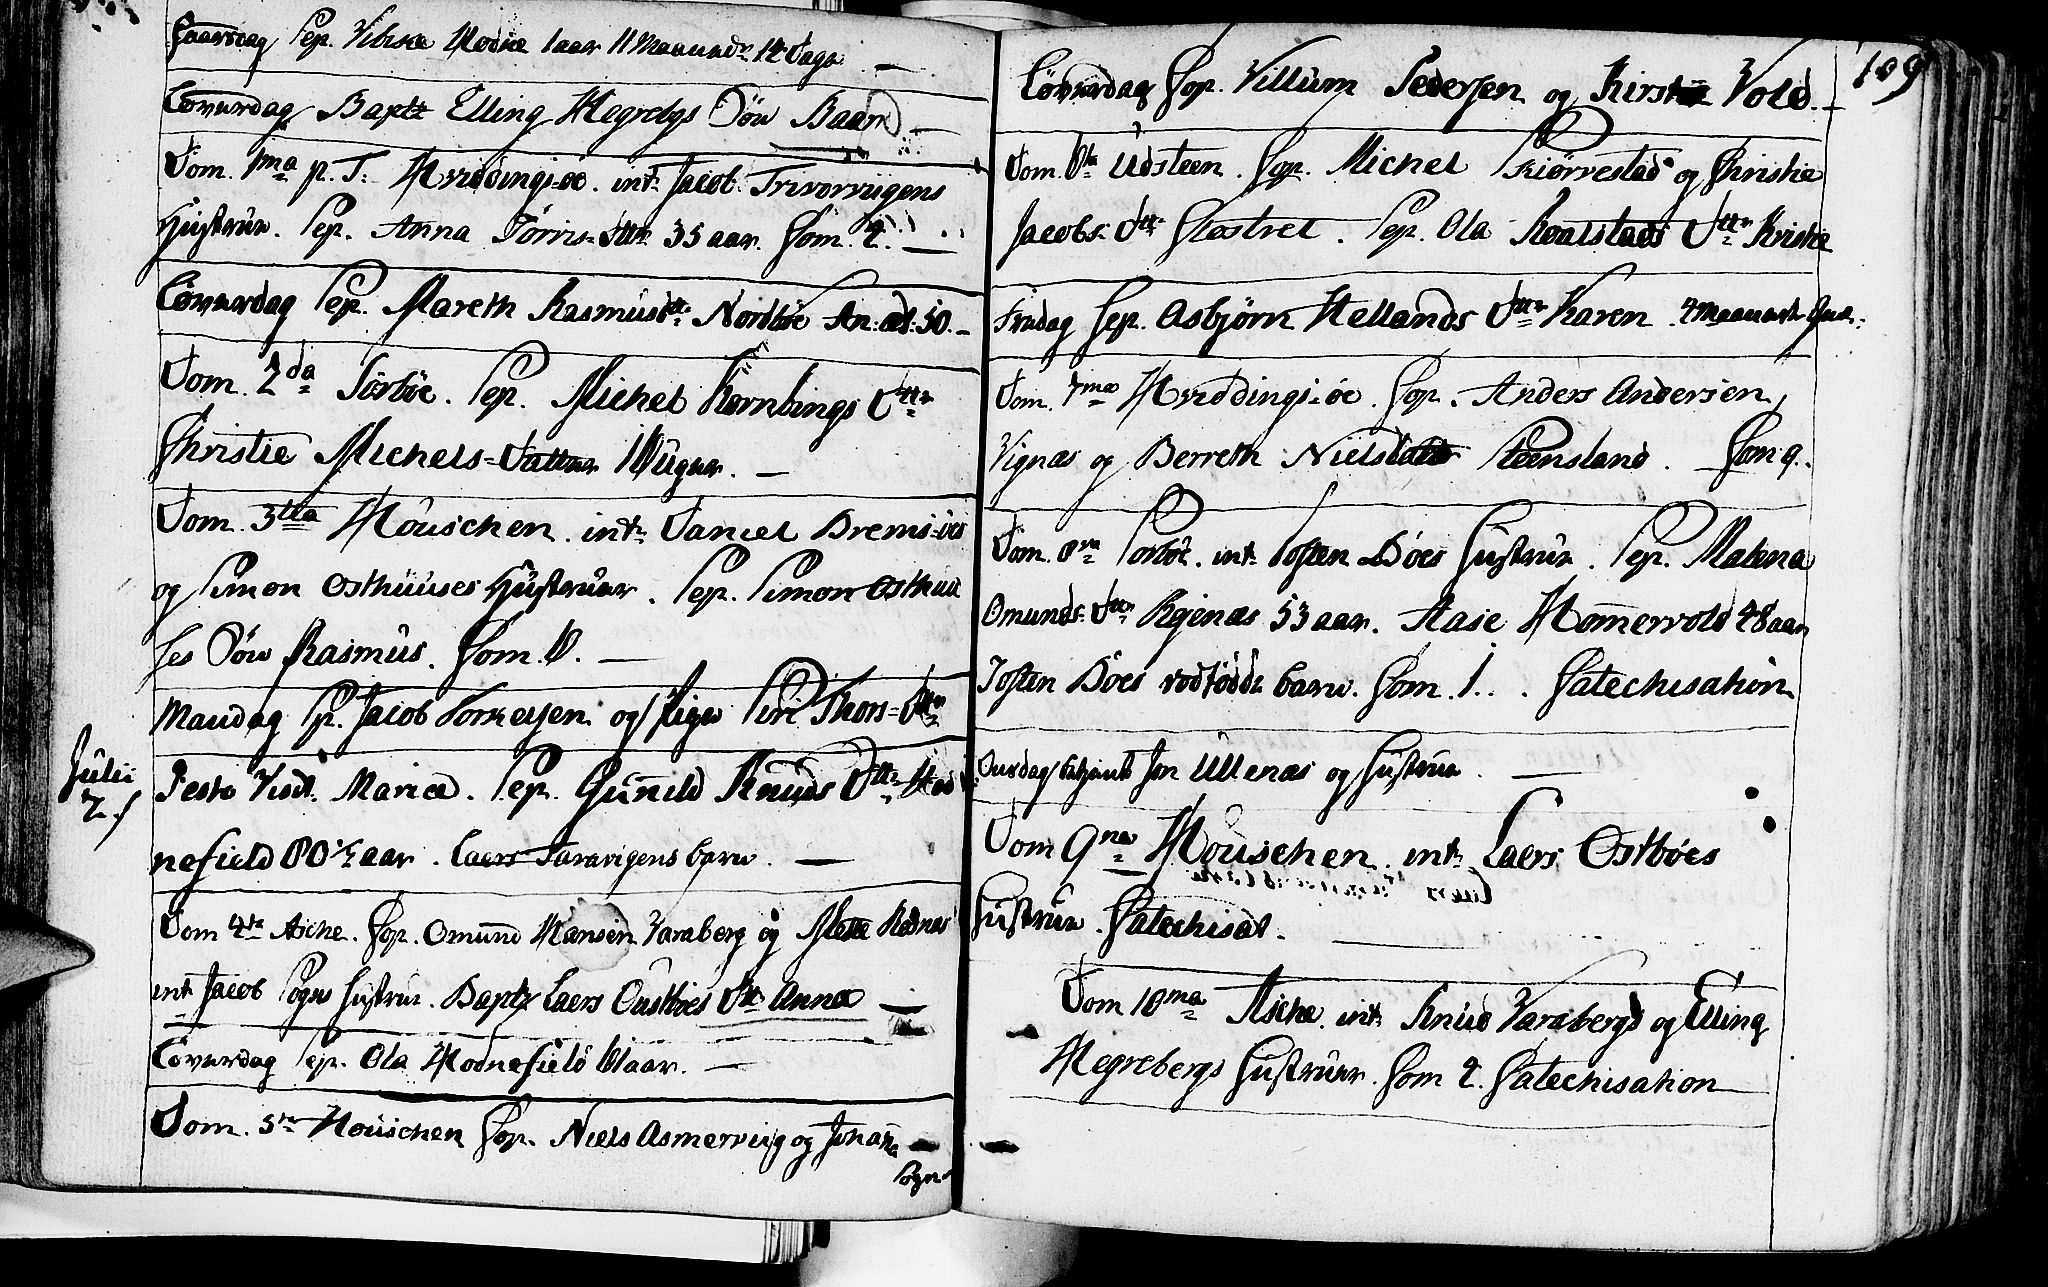 Sep. Vibche 1 aar 11 Maaneder 14 Dage
Løverdag Bapt. Elling Hegrebgs Søn Baar
Dom. 1ma p. T. Hvidings-øe. int. Jacob
Hustrue. Sep. Anna Torris-Dttr 35 aar. Com. 4.
Løverdag Sep. Mareth Rasmusdtr Nordbøe An: æt: 50.
Dom. 2da Sørbøe. Sep. Michel Dttr
Christie Michels-Datter
Dom. 3tia Houschen. int. Daniel Brems-øes
og Simon Osthuuses Hustruer. Sep. Simon Osthuu
ses Søn Rasmus. Com. 10.
Mandag Sep. Jacob Torkelsen og Pigen Siri Thors-Dttr
Julii
2.
Festo Visit. Mariæ. Sep. Guñild Knuds Dttr Hod
nefield 80 aar. Laers barn.
Dom 4ta Aske. Cop. Omund Hansen Varaberg og Mette
int. Jacob Sognes Hustrue. Bapt. Laers Oustbøes Dtt. Anna
Løverdag Sep. Ola Hodnefield aar.
Dom. 5ta Houschen Cop. Niels Asmervig og Johaña
Sogn
109
Løverdag Cop. Villum Pedersen og Kirstie Vold.
Dom. 6ta Udsteen. Cop. Michel Skiørrestad og Christie
Jacobs-Dttr. Sep. Ola Dttr Kristie
Fredag Sep. Asbjørn Hellands Dttr Karen 4 Maaneder
Dom. 7ma Hvidings-øe. Cop. Anders Andersen
Vignæs og Berreth Nielsdatter Steensland. Com 9.
Dom. 8va Sørbøe. int. Josten Bøes Hustrue. Sep. Malena
Omunds-Dttr 53 aar. Aase Homervold 48 aar
Josten Bøes dødfødde barn. Com. 1. Catechisation
Onsdag betjente Jon Ullenæs og Hustrue.
Dom 9na Houschen. int. Laers Ostbøes
Hustrue. Catechisat.
Dom 10ma Aske. int. Knud Varabergs og Elling
Hegrebergs Hustruer. Com 4. Catechisation